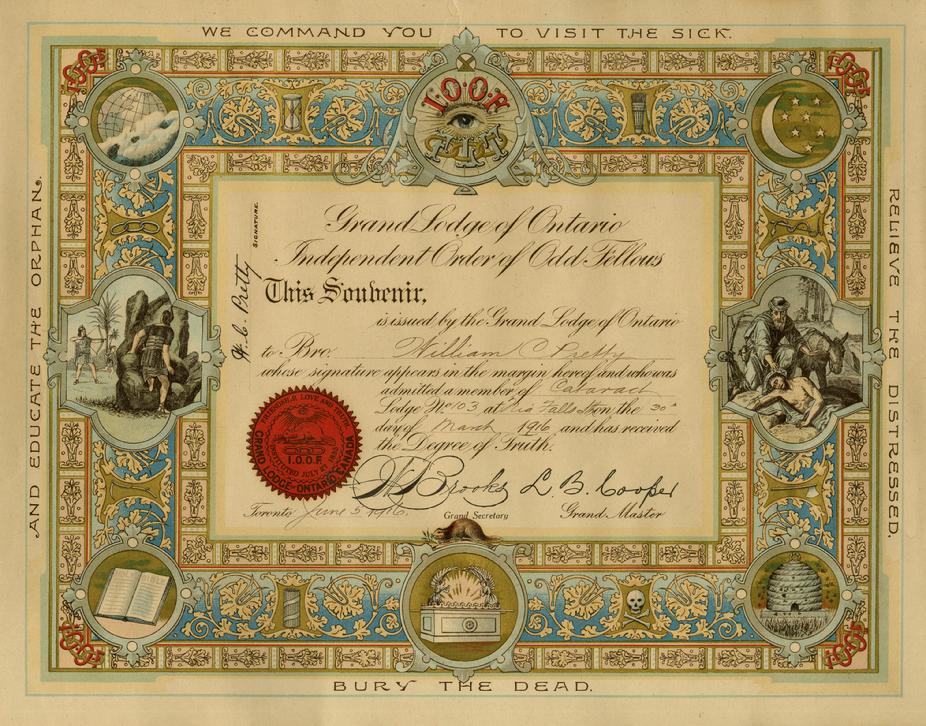 WE COMMAND YOU TO VISIT THE SICK.
I.O.O.F
FLT
Grand Lodge of Ontario
Independent Order of Odd Fellows
This Souvenir,
is issued by the Grand Lodge of Ontario
to Bro. William C Pretty
whose signature appears in the margin hereof and who was
admitted a member of Cataract
Lodge No 103 at Nia Falls S on the 30th
day of March 1916 and has received
the Degree of Truth.
J Brooks L. B. Cooper
Grand Secretary Grand Master
Toronto June 5 1916.
SIGNATURE.
W. C. Pretty
FRIENDSHIP, LOVE AND TRUTH
GRAND LODGE-ONTARIO CANADA
I.O.O.F
RELIEVE THE DISTRESSED.
BURY THE DEAD.
AND EDUCATE THE ORPHAN.